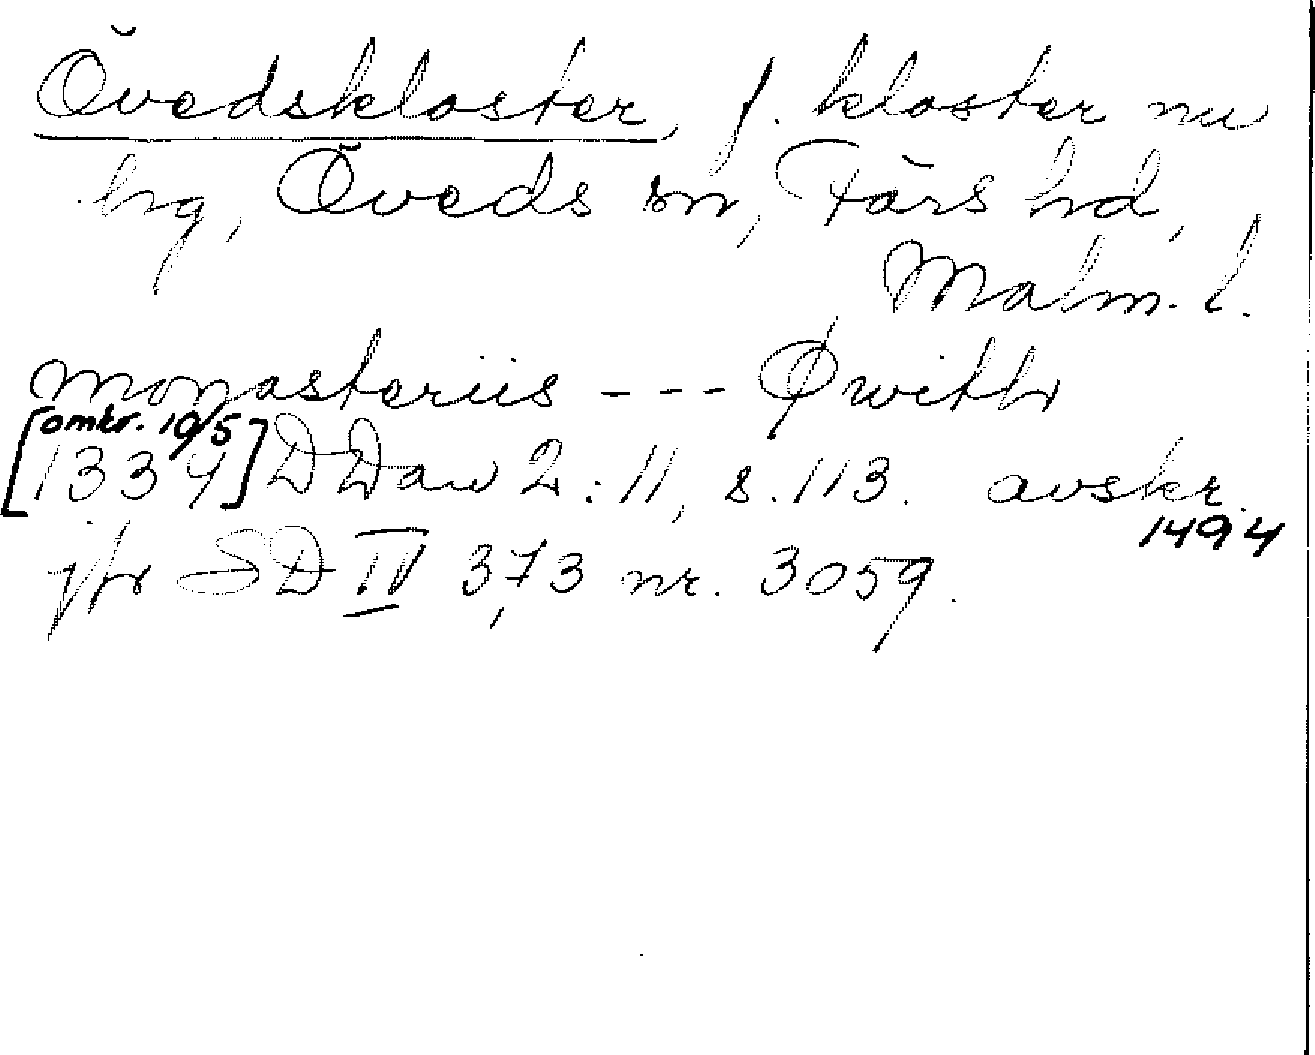 Övedskloster, f. kloster nu
hg, Öveds sn, Färs hd,
Malm. l.
monasteriis --- Øwith
[omkr. 19/5
1334] DDan 2:11, s. 113. avskr.
1494
jfr SD IV 373 nr. 3059.